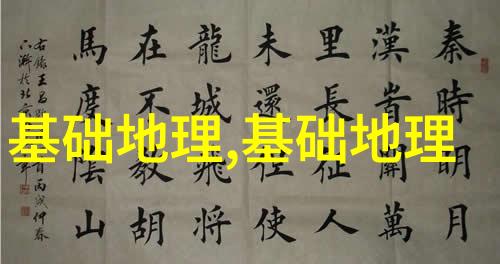 秦時明月
漢旹關萬
里長征人
未還但使
龍城飛將
在不教胡
馬度陰山
右錄王昌 丙戌仲春
於北京
基础地理,基础地理